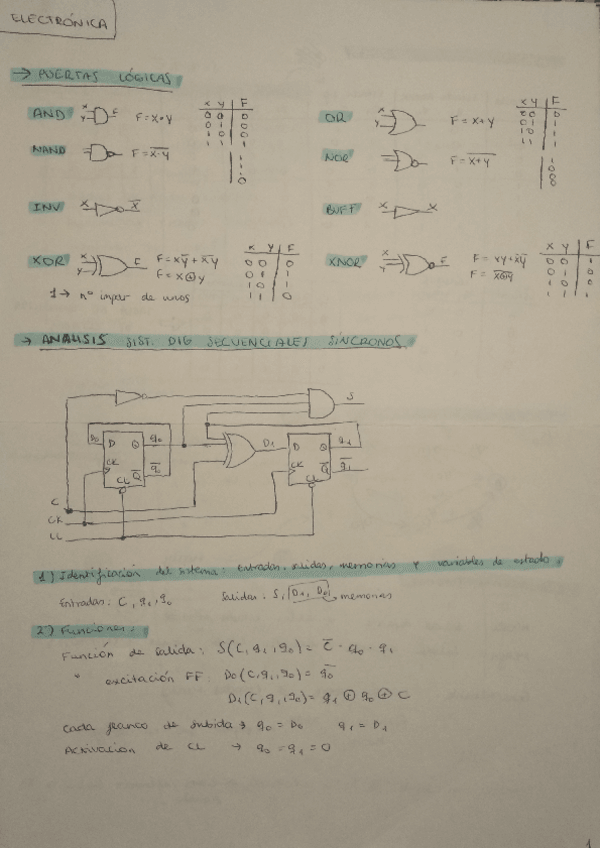 ELECTRÓNICA
→ PUERTAS LÓGICAS
AND X Y F F = X • Y
X Y F
0 0 0
0 1 0
1 0 0
1 1 1
OR X Y F = X + Y
X Y F
0 0 0
0 1 1
1 0 1
1 1 1
NAND F = \overline{X·Y}
1
1
1
0
NOR F = \overline{X+Y}
1
0
0
0
INV X \overline{X}
BUFF X X
XOR X Y F F = X\overline{Y} + \overline{X}Y
F = X ⊕ Y
1 → nº impar de unos
X Y F
0 0 0
0 1 1
1 0 1
1 1 0
XNOR X Y F F = XY + \overline{X}\overline{Y}
F = \overline{X⊕Y}
X Y F
0 0 1
0 1 0
1 0 0
1 1 1
→ ANÁLISIS SIST. DIG SECUENCIALES SÍNCRONOS
S
D0 D Q q0 D1 D Q q1
CK \overline{Q} \overline{q0} CK \overline{Q} \overline{q1}
CL CL
C
CK
CL
1) Identificación del sistema: Entradas, salidas, memorias y variables de estado.
Entradas: C, q1, q0 Salidas: S, D1, D0 → memorias
2) Funciones:
Función de salida: S(C, q1, q0) = \overline{C} · q0 · q1
" excitación FF: D0(C, q1, q0) = \overline{q0}
D1(C, q1, q0) = q1 ⊕ q0 ⊕ C
Cada flanco de subida → q0 = D0 q1 = D1
Activacion de CL → q0 = q1 = 0
1